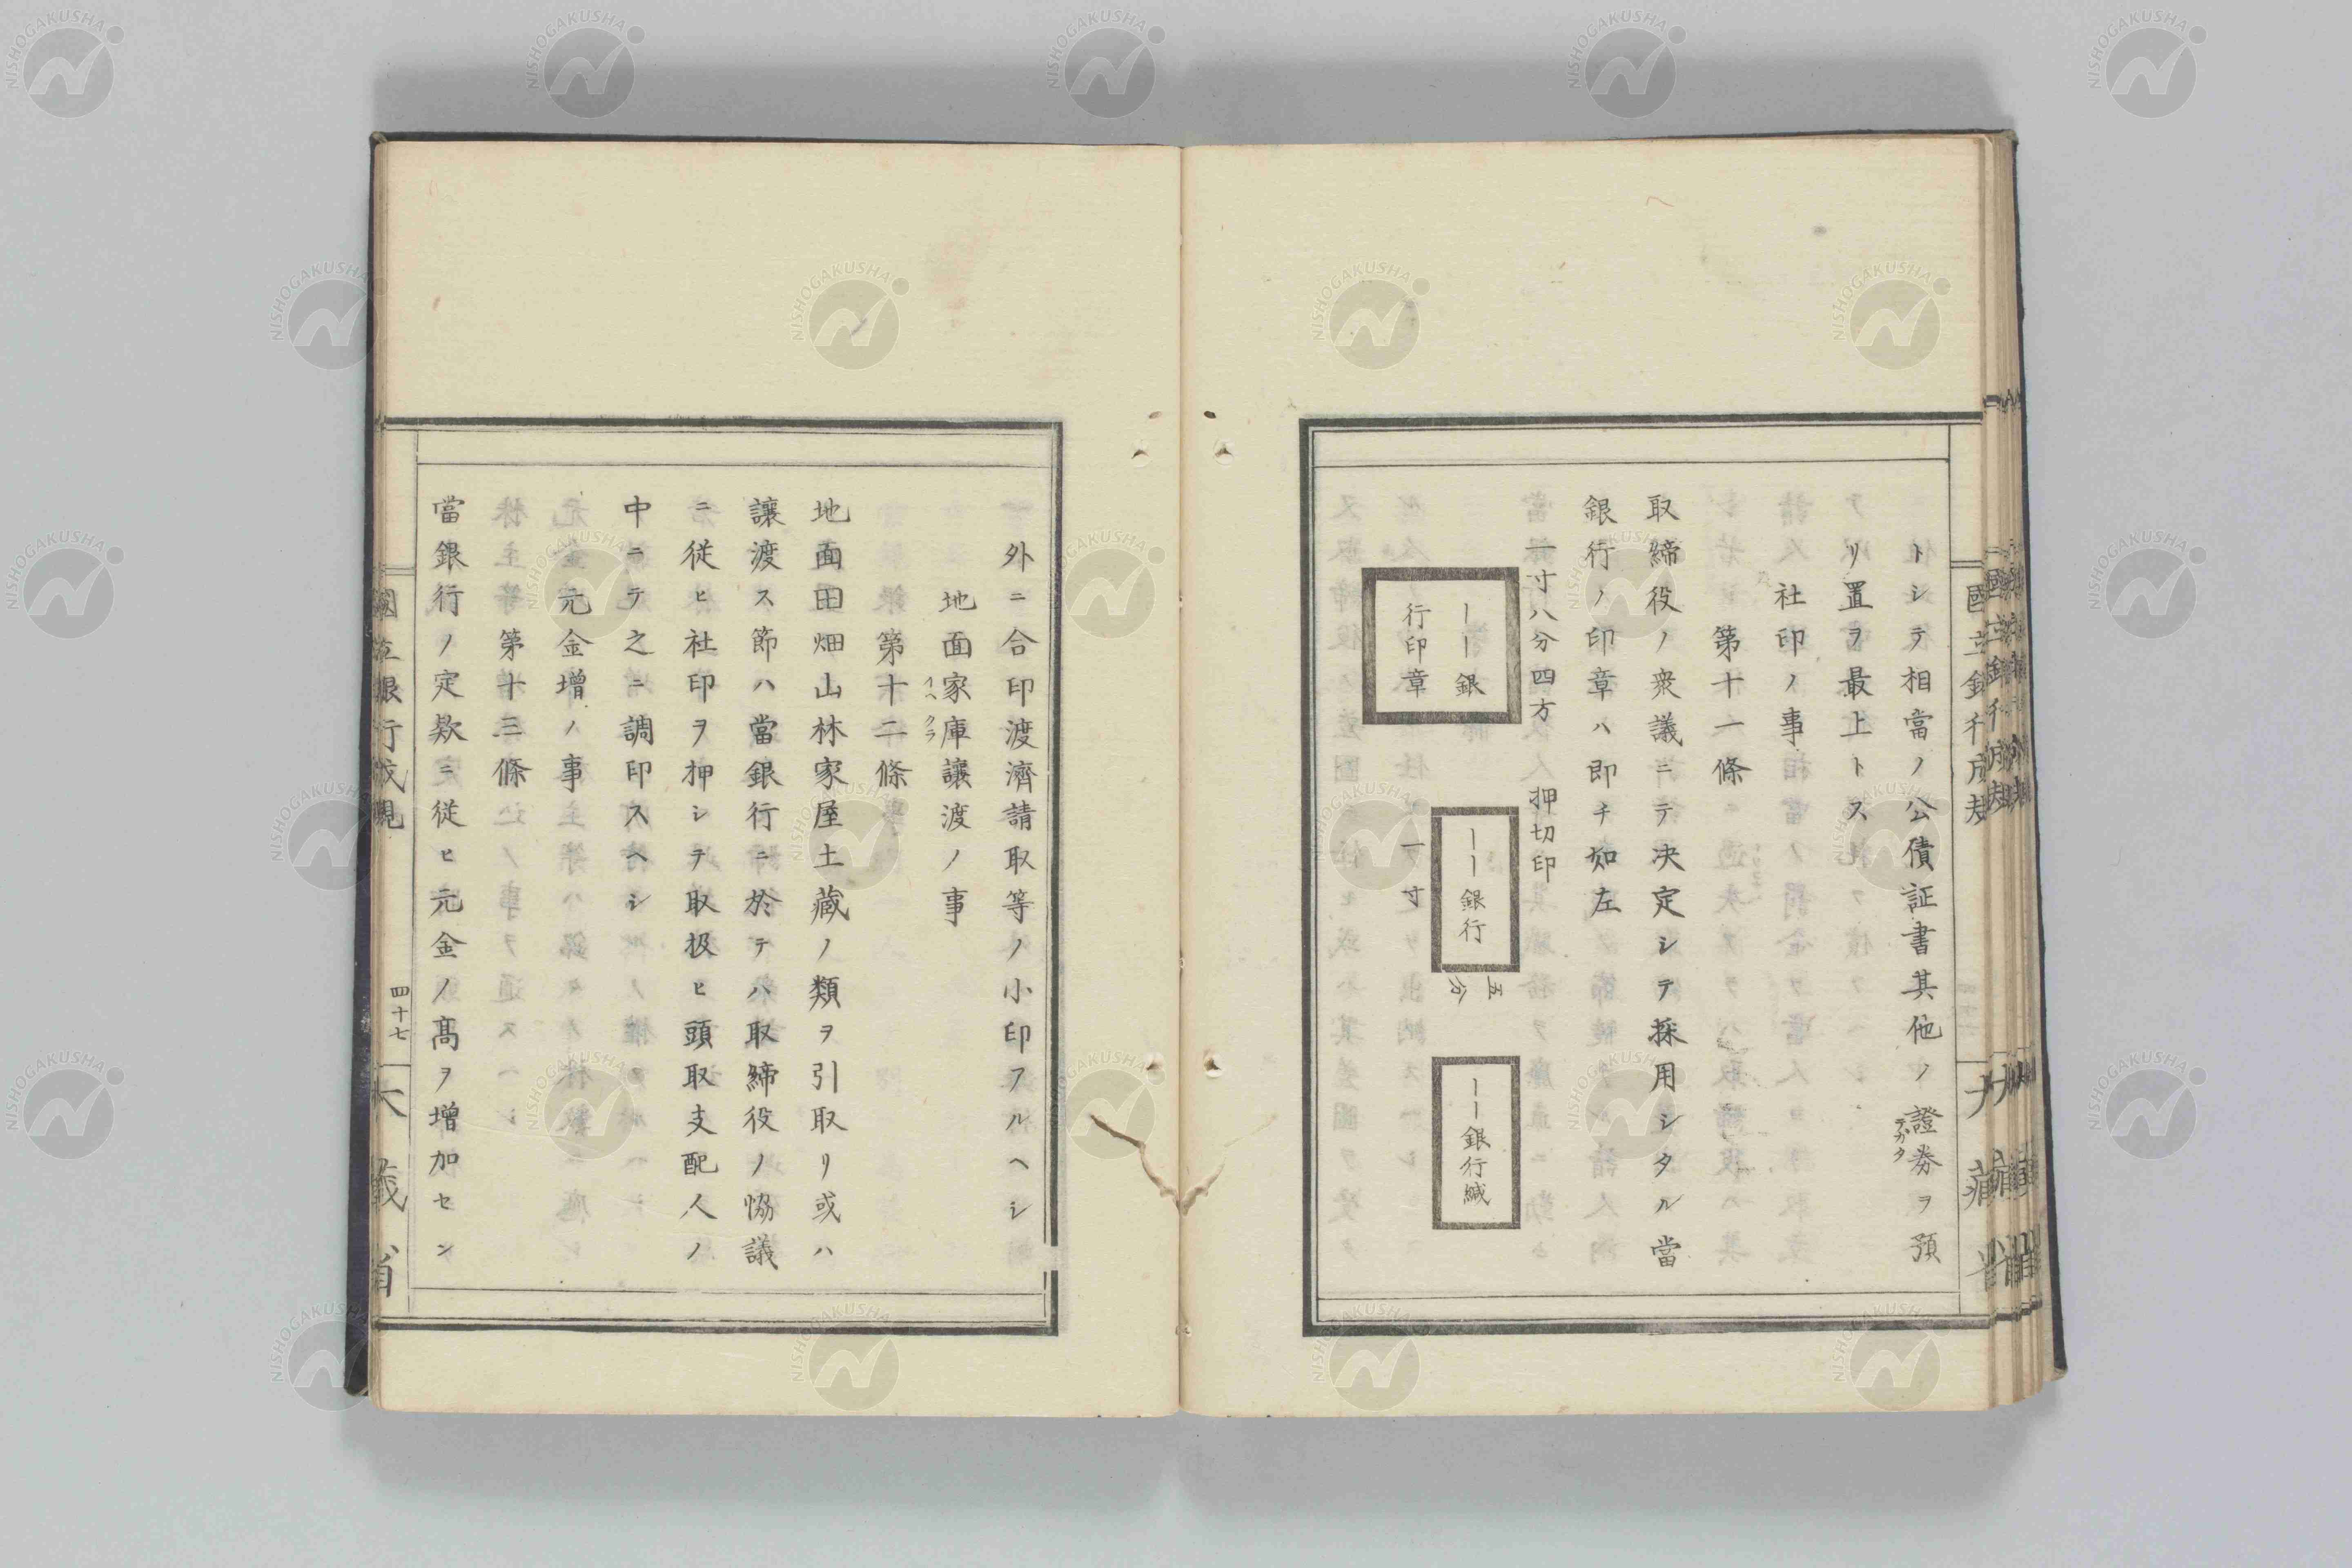 トシテ相當ノ公債証書其他ノ證券ヲ預
テガタ
リ置ヲ最上トス
社印ノ事
第十一條
取締役ノ衆議ニテ决定シテ採用シタル當
銀行ノ印章ハ即チ如左
一寸八分四方
押切印
ーー銀
行印章
ーー銀行
一寸
五分
ーー銀行緘
外ニ合印渡濟請取等ノ小印アルヘシ
地面家庫讓渡ノ事
イヘクラ
第十二條
地面田畑山林家屋土藏ノ類ヲ引取リ或ハ
讓渡ス節ハ當銀行ニ於テハ取締役ノ恊議
ニ從ヒ社印ヲ押シテ取扱ヒ頭取支配人ノ
中ニテ之ニ調印スヘシ
元金增ノ事
第十三條
當銀行ノ定欵ニ從ヒ元金ノ髙ヲ增加セン
國立銀行成規
四十七
大藏省
NISHOGAKUSHA